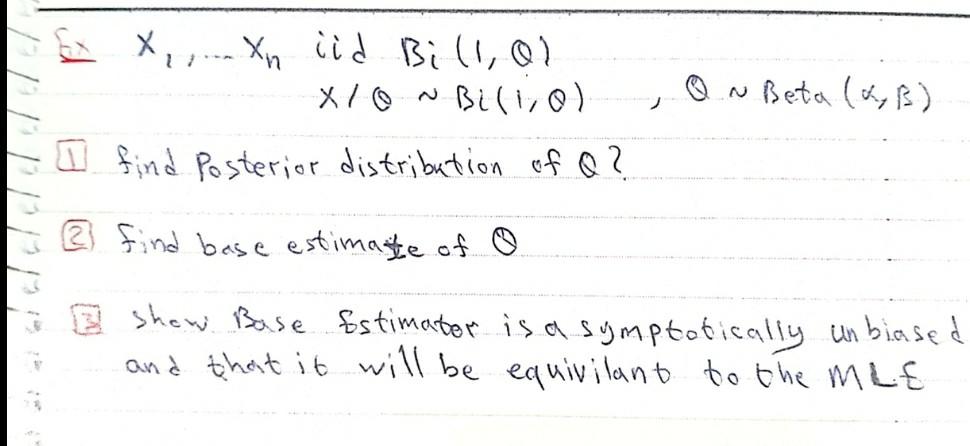 Ex X₁, ... Xₙ iid Bi (1, θ)
X/θ ~ Bi(1, θ) , θ ~ Beta (α, β)
1 find Posterior distribution of θ?
2 find base estimate of θ
3 show Base Estimator is asymptotically unbiased
and that it will be equivilant to the MLE